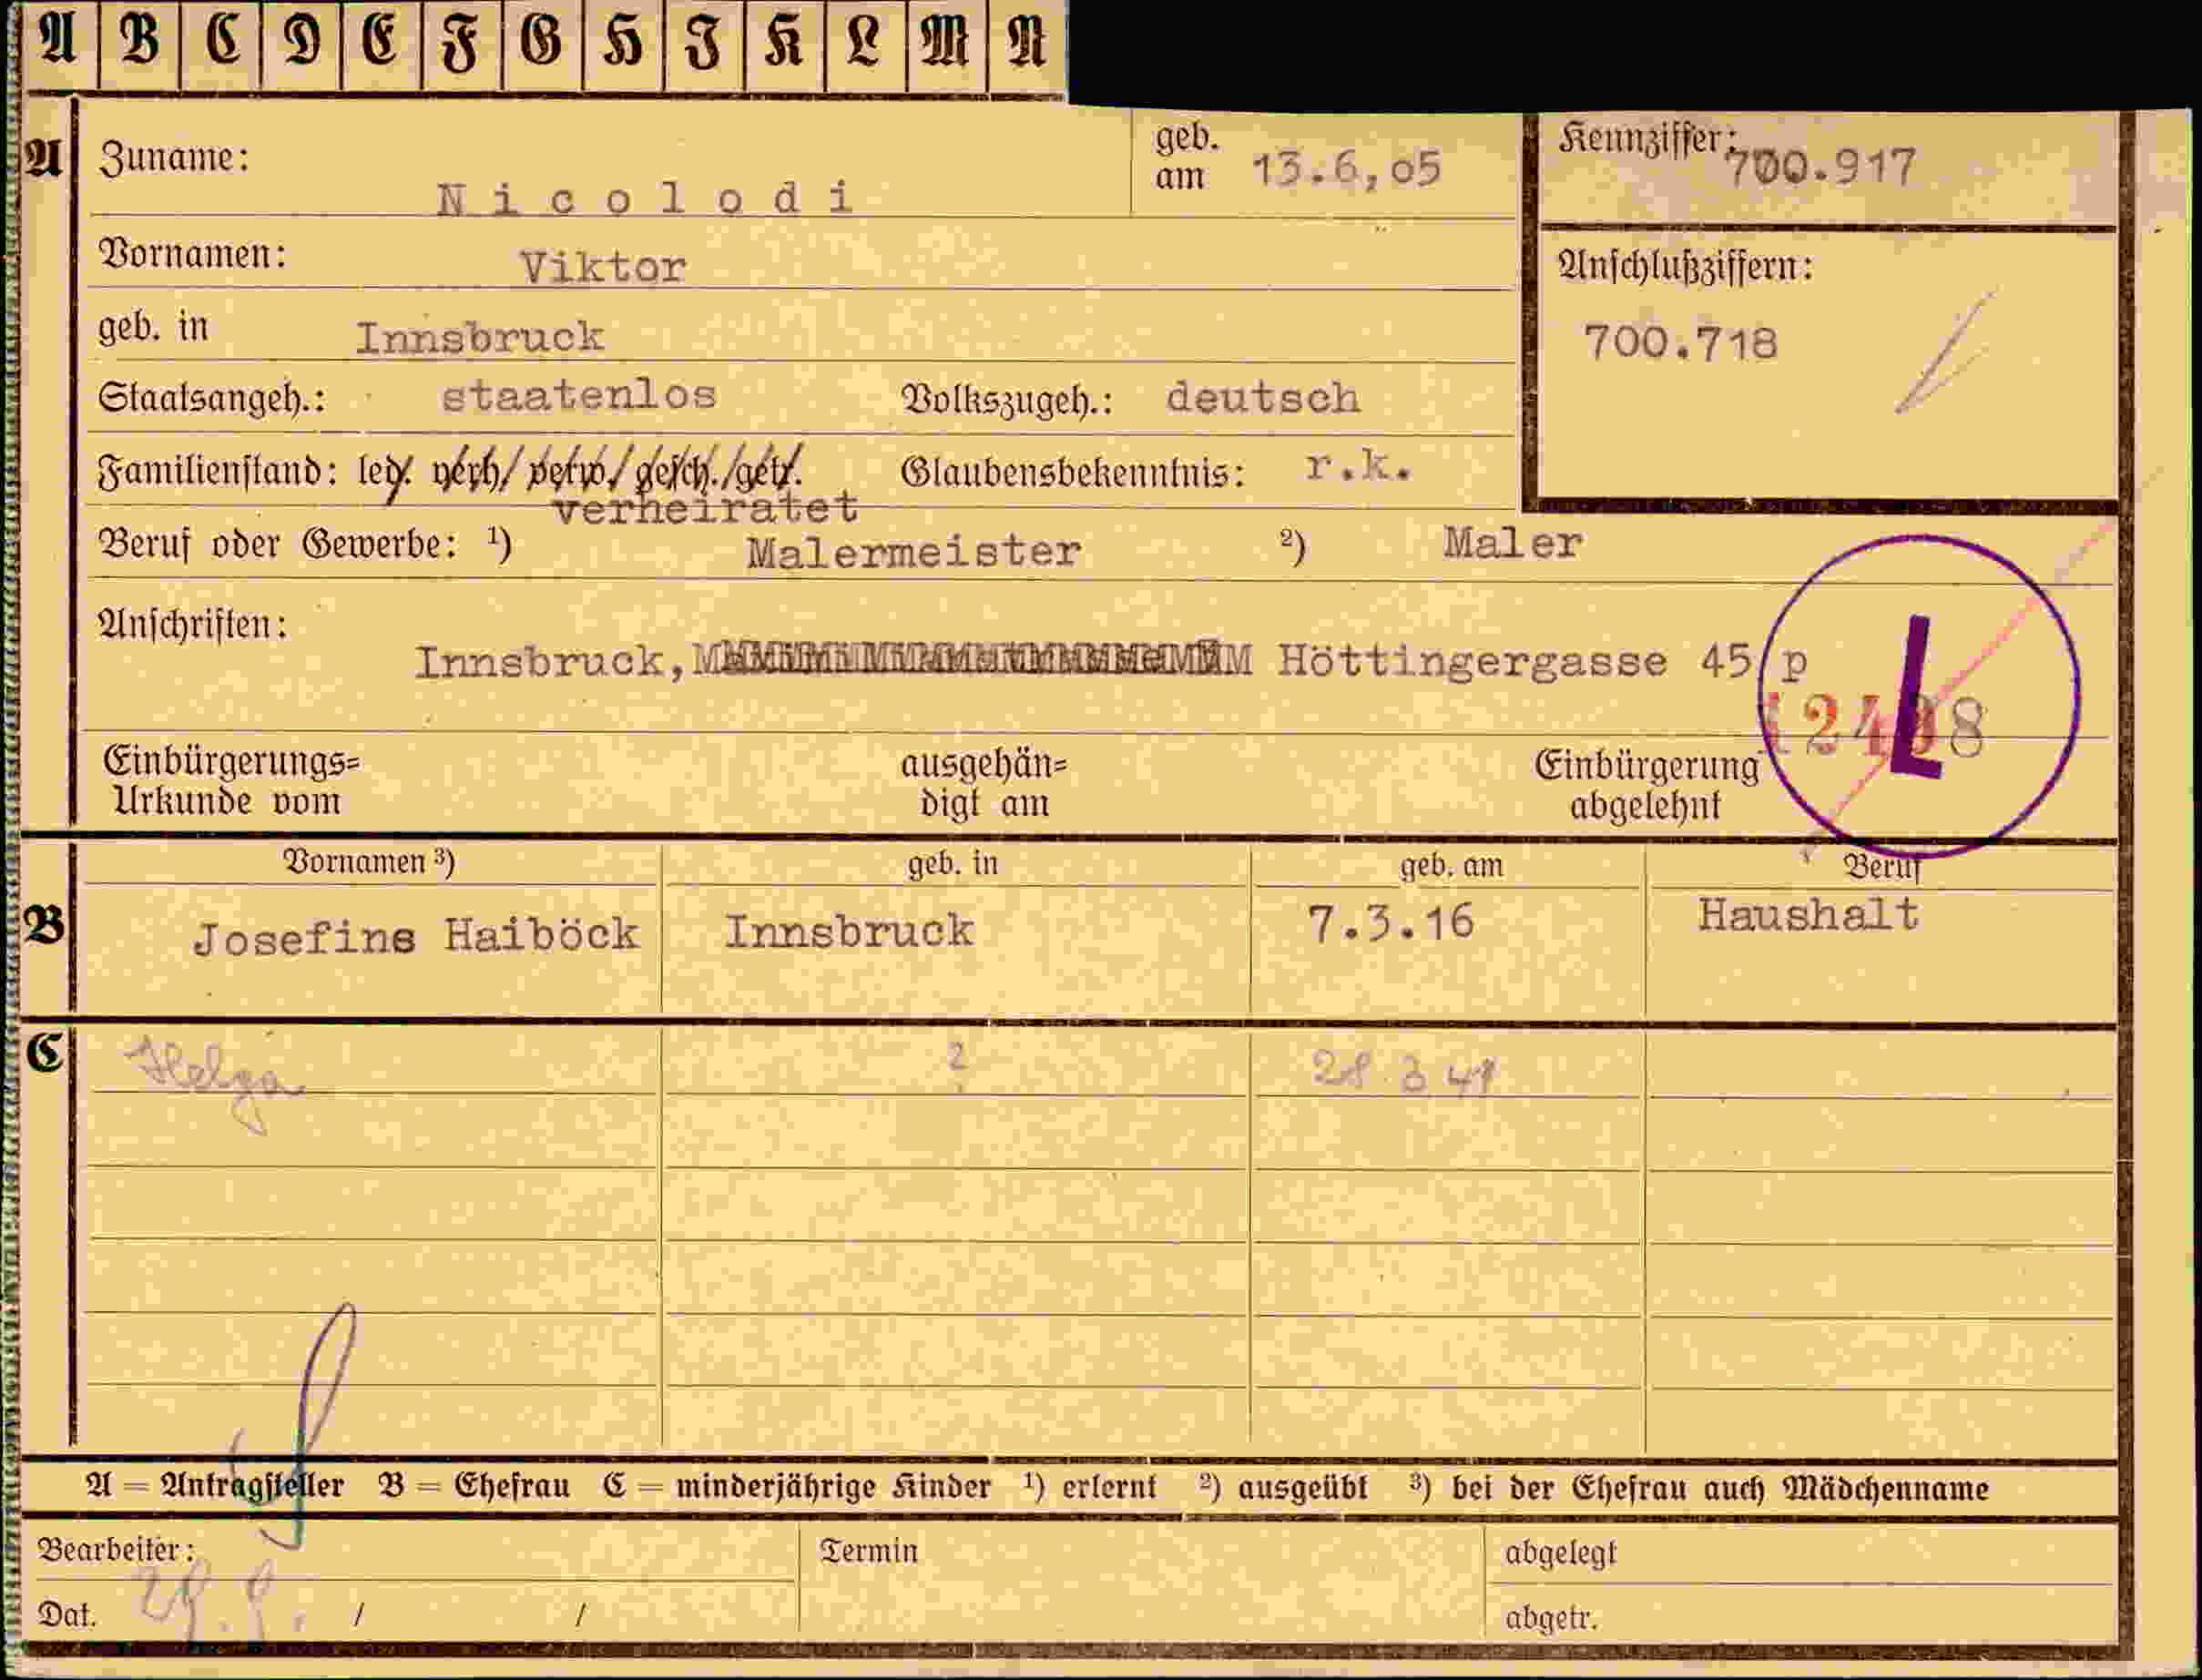 A B C D E F G H I K L M N
A Zuname: Nicolodi geb. am 13.6,05 Kennziffer: 700.917
Vornamen: Viktor Anschlußziffern:
geb. in Innsbruck 700.718
Staatsangeh.: staatenlos Volkszugeh.: deutsch
Familienstand: led. verh/ verw/ gesch./getr. Glaubensbekenntnis: r.k.
verheiratet
Beruf oder Gewerbe: ¹) Malermeister ²) Maler
Anschriften: Innsbruck, Höttingergasse 45/p
L
Einbürgerungs=
Urkunde vom
ausgehän=
digt am
Einbürgerung
abgelehnt
Vornamen ³) geb. in geb. am Beruf
B Josefine Haiböck Innsbruck 7.3.16 Haushalt
C Helga ? 28.3.41
A = Antragsteller B = Ehefrau C = minderjährige Kinder ¹) erlernt ²) ausgeübt ³) bei der Ehefrau auch Mädchenname
Bearbeiter: Termin abgelegt
Dat. / / abgetr.